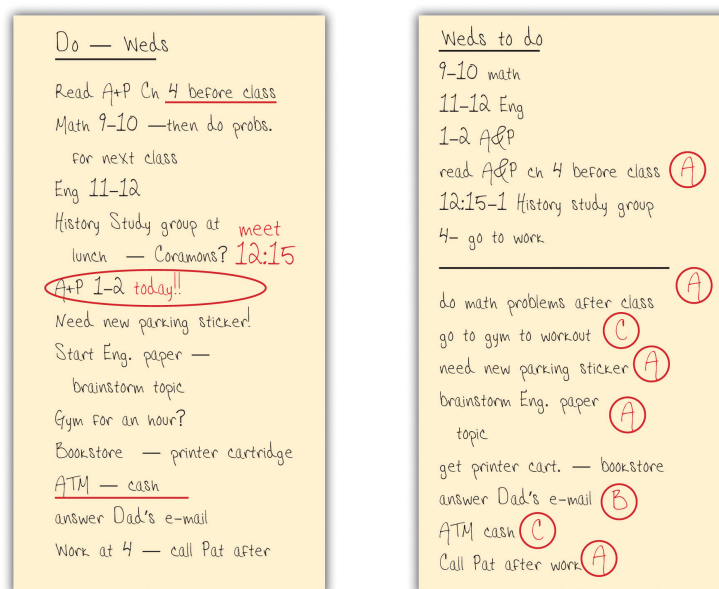 Do — Weds
Read A+P Ch 4 before class
Math 9-10 —then do probs.
for next class
Eng 11-12
History Study group at meet
lunch — Coramons? 12:15
A+P 1-2 today!!
Need new parking sticker!
Start Eng. paper —
brainstorm topic
Gym for an hour?
Bookstore — printer cartridge
ATM — cash
answer Dad's e-mail
Work at 4 — call Pat after
Weds to do
9-10 math
11-12 Eng
1-2 A&P
read A&P ch 4 before class A
12:15-1 History study group
4- go to work
do math problems after class A
go to gym to workout C
need new parking sticker A
brainstorm Eng. paper A
topic
get printer cart. — bookstore
answer Dad's e-mail B
ATM cash C
Call Pat after work A